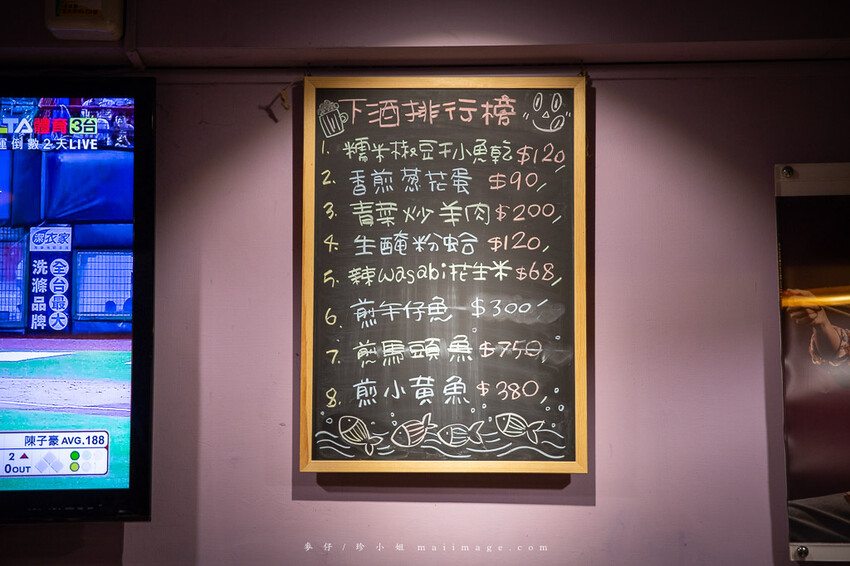 LTA體育3台
倒數2天LIVE
潔衣家
洗滌品牌
全台最大
陳子豪 AVG.188
2
0 OUT
下酒排行榜
1. 糯米椒豆干小魚乾 $120
2. 香煎蔥花蛋 $90
3. 青菜炒羊肉 $200
4. 生醃粉蛤 $120
5. 辣wasabi花生米 $68
6. 煎午仔魚 $300
7. 煎馬頭魚 $750
8. 煎小黃魚 $380
麥仔/珍小姐 maiimage.com